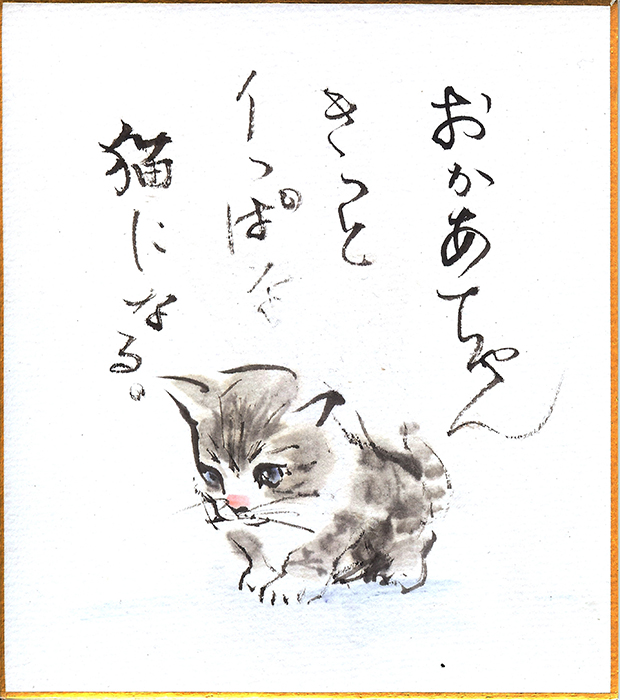 おかあちゃん
きっと
イっぱな
猫になる。